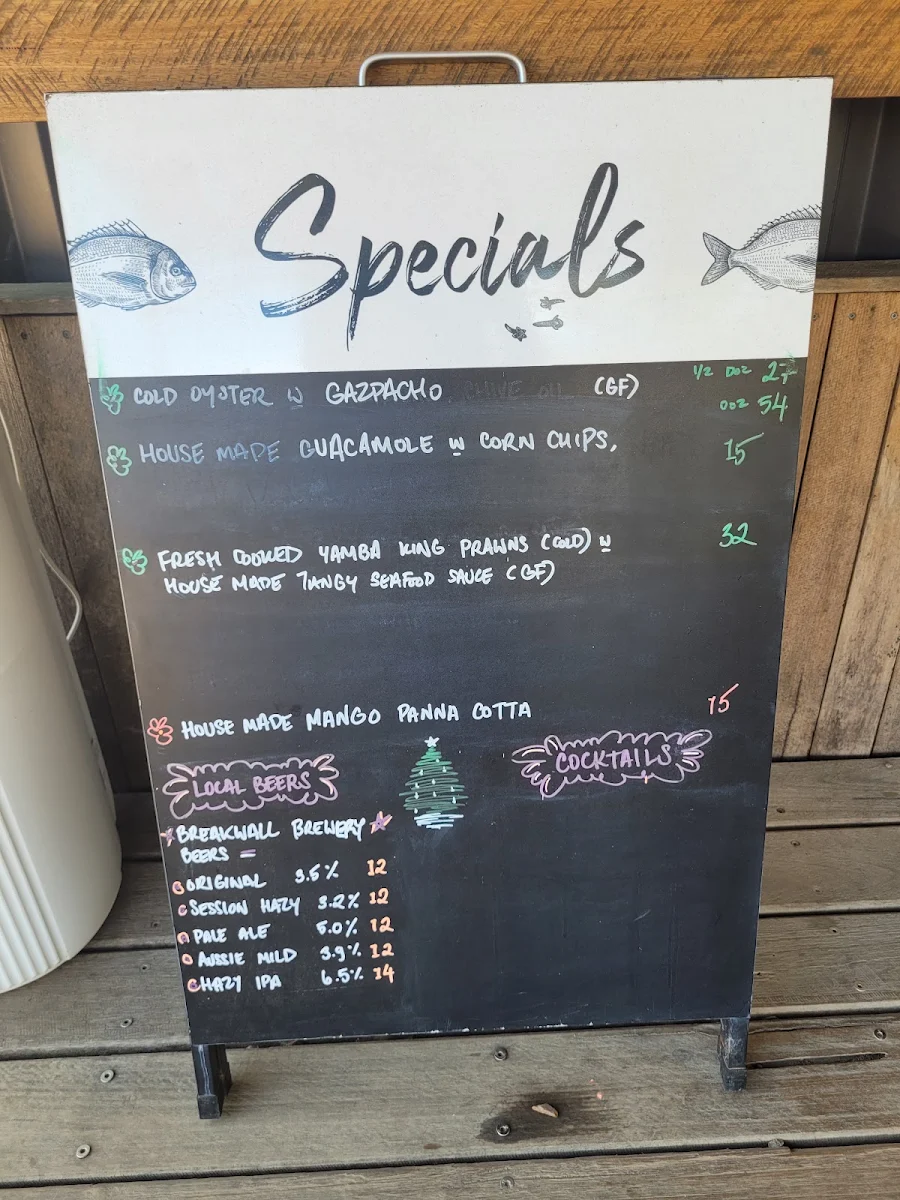 Specials
COLD OYSTER W GAZPACHO CHIVE OIL (GF) 1/2 DOZ 27
DOZ 54
HOUSE MADE GUACAMOLE W CORN CHIPS, 15
FRESH COOKED YAMBA KING PRAWNS (COLD) W 32
HOUSE MADE TANGY SEAFOOD SAUCE (GF)
HOUSE MADE MANGO PANNA COTTA 15
LOCAL BEERS
COCKTAILS
BREAKWALL BREWERY
BEERS =
ORIGINAL 3.5% 12
SESSION HAZY 3.2% 12
PALE ALE 5.0% 12
AUSSIE MILD 3.9% 12
HAZY IPA 6.5% 14